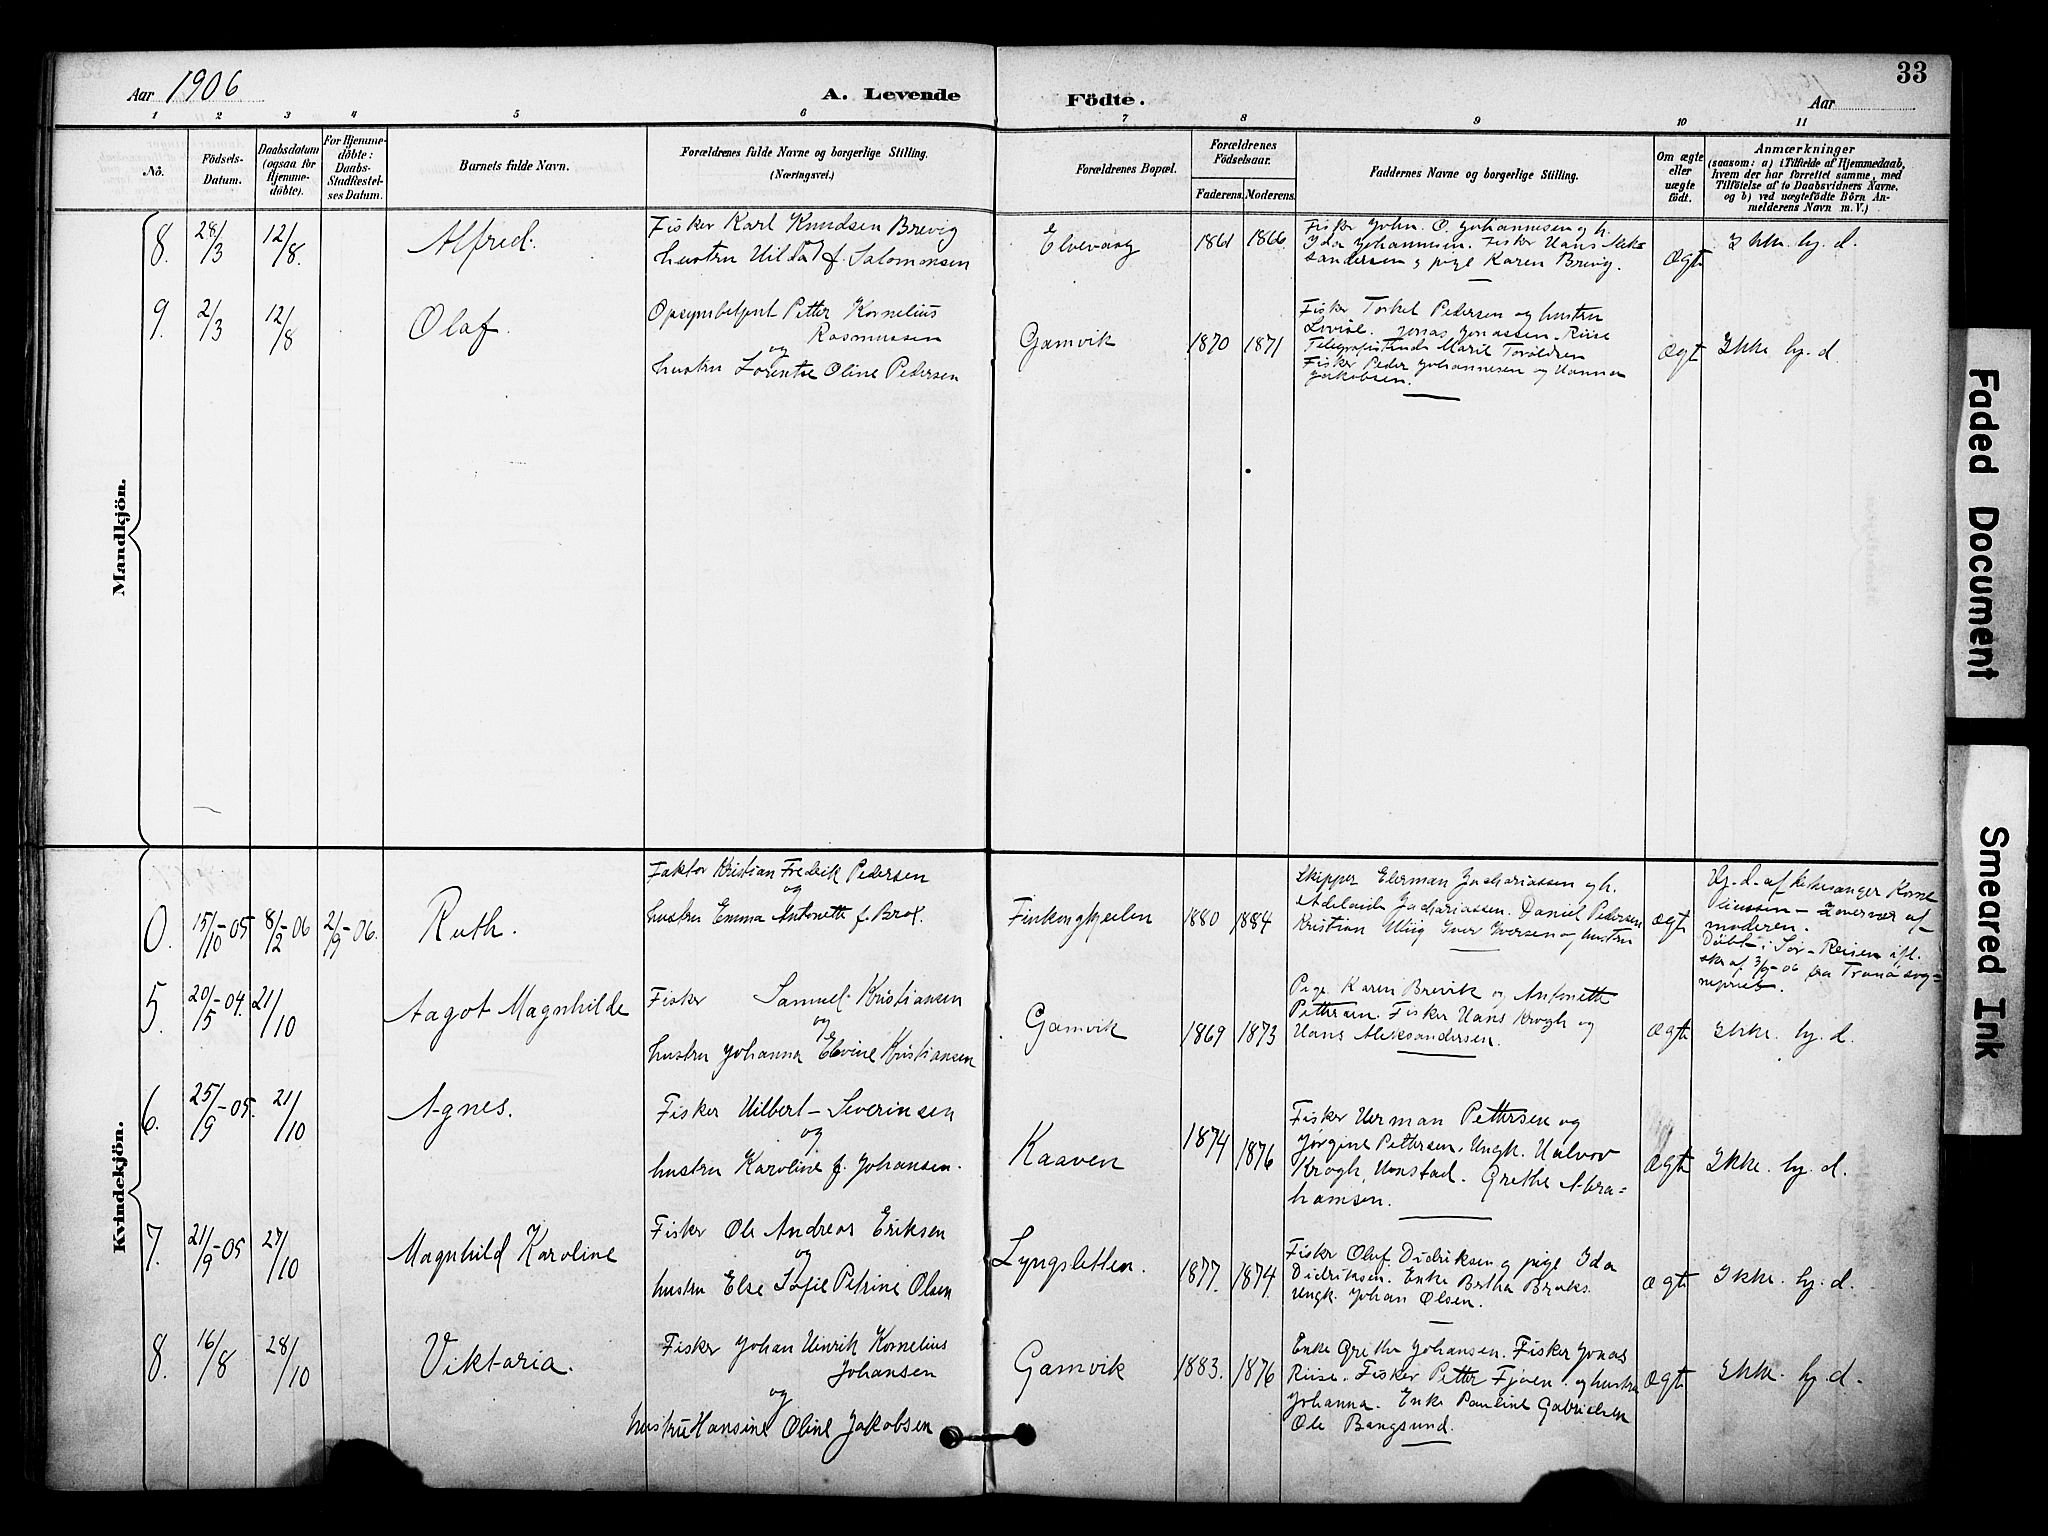 33
Aar 1906
A. Levende
Födte.
Aar
1 2 3 4 5 6 7 8 9 10 11
No.
Födsels-
Datum.
Daabsdatum
(ogsaa for
Hjemme-
döbte).
For Hjemme-
döbte:
Daabs-
Stadfæstel-
ses Datum.
Barnets fulde Navn.
Forældrenes fulde Navne og borgerlige Stilling.
(Næringsvei.)
Forældrenes Bopæl.
Forældrenes
Födselsaar.
Faderens. Moderens.
Faddernes Navne og borgerlige Stilling.
Om ægte
eller
uægte
födt.
Anmærkninger
(saasom: a) i Tilfælde af Hjemmedaab,
hvem der har forrettet samme, med
Tilföielse af to Daabsvidners Navne.
og b) ved uægtefödte Börn An-
melderens Navn m. V.)
Mandkjön.
8. 28/3 12/8. Alfred.
Fisker Karl Knudsen Brevig
hustru Hilda f. Salomonsen
Elvevaag 1861 1866
Fisker John. O. Johannesen og h.
Ida Johannesen. Fisker Hans Alek
sandersen og pige Karen Brevig.
Ægte Ikke hj. d.
9. 2/3 12/8 Olaf.
Petter Kornelius
Rasmussen
og
hustru Lorentse Oline Pedersen
Gamvik 1870 1871
Fisker Torkel Pedersen og hustru
Lovise. Jonas Jonassen Riise
Marie
Fisker Peder Johannesen og Hanna
Jakobsen.
Ægte Ikke hj. d.
Kvindekjön.
0. 15/10-05 8/2-06 2/9-06. Ruth.
Faktor Kristian Fredrik Pedersen
og
hustru Emma Antonette f. Brox.
Finkongkjeilen 1880 1884
Skipper Elerman Zachariassen og h.
Adelaide Zachariassen. Daniel Pedersen
Kristian Iver Iversen og hustru
Ægte
Hj. d. af kirkesanger Korne
liussen - af
moderen.
Döbt i Sör-Reisen ifl.
skr. af 3/9-06 fra Tranö sog=
neprest.
5. 20/5-04. 21/10 Aagot Magnhilde
Fisker Samuel Kristiansen
og
hustru Johanna Elvine Kristiansen
Gamvik 1869 1873
Pige Karen Brevik og Antonette
Pettersen. Fisker Hans Krogh og
Hans Aleksandersen.
Ægte Ikke. hj. d.
6. 25/9-05. 21/10 Agnes.
Fisker Hilbert Severinsen
og
hustru Karoline f. Johansen.
Kaaven 1874 1876
Fisker Herman Pettersen og
Jørgine Pettersen. Ungk. Halvor
Krogh, Grethe Abra=
hamsen.
Ægte Ikke. hj. d.
7. 21/9-05 27/10 Magnhild Karoline
Fisker Ole Andreas Eriksen
og
hustru Else Sofie Petrine Olsen
Lyngsletten. 1877. 1874.
Fisker Olaf Didriksen og pige Ida
Didriksen. Enke Bertha Broks.
Ungk. Johan Olsen.
Ægte Ikke. hj. d.
8. 16/8 28/10 Viktoria.
Fisker Johan Hinrik Kornelius
Johansen
og
hustru Hansine Oline Jakobsen
Gamvik 1883. 1876
Enke Grethe Johansen. Fisker Jonas
Riise. Fisker Petter Fjøsen og hustru
Johanna. Enke Pauline Gabrielsen
Ole Bangsund.
Ægte Ikke. hj. d.
Faded Document
Smeared Ink